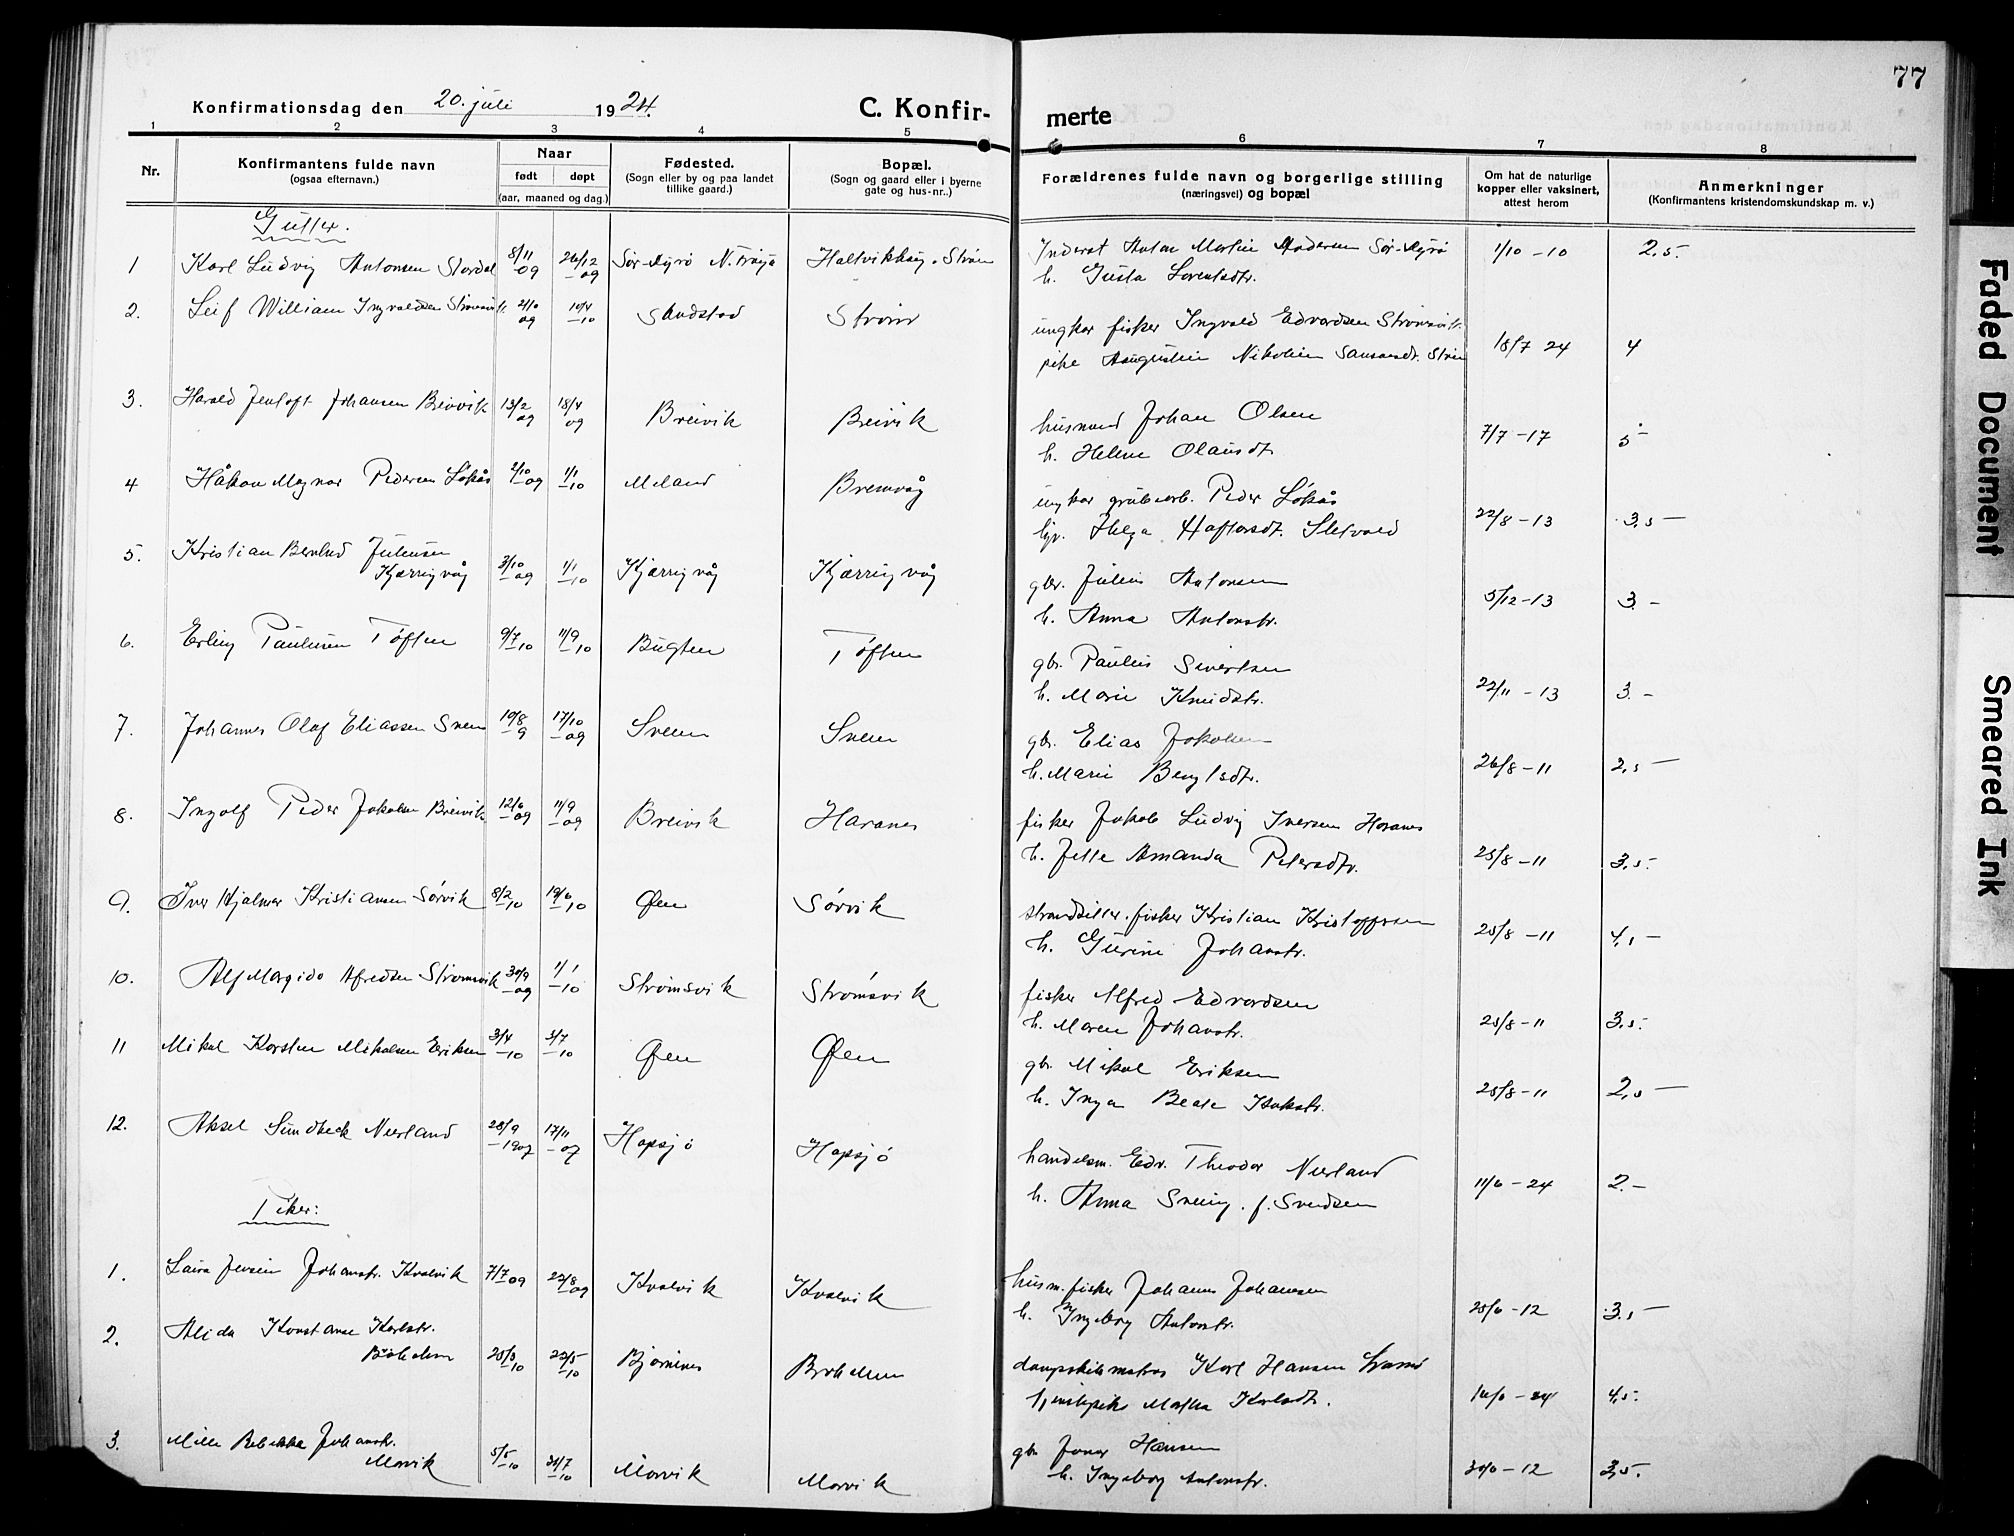 77
Konfirmationsdag den 20. juli 1924.
C. Konfir-
merte
1 2 3 4 5 6 7 8
Nr.
Konfirmantens fulde navn
(ogsaa efternavn.)
Naar
født døpt
(aar, maaned og dag.)
Fødested.
(Sogn eller by og paa landet
tillike gaard.)
Bopæl.
(Sogn og gaard eller i byerne
gate og hus-nr..)
Forældrenes fulde navn og borgerlige stilling
(næringsvei) og bopæl
Om hat de naturlige
kopper eller vaksinert,
attest herom
Anmerkninger
(Konfirmantens kristendomskundskap m. v.)
Gutter.
1 Karl Ludvig Antonsen Stordal 8/11 09 26/12 09 Sør-Dyrø N. Frøya Strøm
Anton Martin Sør-Dyrø 1/10-10 2,5.
h. Gusta Lorentsdtr.
2. Leif William Ingvaldsen 21/10 09 10/4 10 Sandstad Strøm
ungkar fisker Ingvald Edvardsen 18/7 24 4
pike Nikoline
3. Harald Jentoft Johansen Breivik 13/2 09 18/4 09 Breivik Breivik
husmand Johan Olsen 7/7-17 5-
h. Helene Olausdt.
4 Håkon Magnar Pedersen Løkås 2/10 09 1/1 10 Meland Bremvåg
ungkar grubearb. Peder Løkås 22/8-13 3,5-
Helga Haftorsdt. Sletvold
5. Kristian Bernhard Juliussen
Kjærrigvåg 3/10 09 1/1 10 Kjærrigvåg Kjærrigvåg
gbr. Julius Antonsen 5/12-13 3.-
h. Anna Antonstr.
6. Erling Paulusen Tøften 9/7 10 11/9 10 Bugten Tøften
gbr. Paulus Sivertsen 22/11-13 3.-
h. Marie Knudstr.
7. Johannes Olaf Eliassen Sveen 19/8 9 17/10 09 Sveen Sveen
gbr. Elias Jakobsen 26/8-11 2,5-
h. Marie Bengtsdtr.
8. Ingolf Peder Jakobsen Breivik 12/6 09 11/9 09 Breivik Haranes
fisker Jakob Ludvig Iversen Haranes 25/8-11 3,5-
h. Jette Amanda Petersdtr.
9. Iver Hjalmar Kristiansen Sørvik 8/2 10 19/6 10 Øen Sørvik
strandsitter. fisker Kristian Kristoffersen 25/8-11 4,5-
h. Gurine Johanstr.
10. Alf Margido Alfredsen Strømsvik 30/9 09 1/1 10 Strømsvik Strømsvik
fisker Alfred Edvardsen 25/8-11 3,5-
h. Maren Johanstr.
11 Mikal Karsten Mikalsen Eriksen 3/4 10 3/7 10 Øen Øen
gbr. Mikal Eriksen 25/8-11 2,5-
h. Inga Beate
12. Aksel Sundbeck Neerland 28/9 1907 17/11 07 Hopsjø Hopsjø
handelsm. Edv. Theodor Neerland 11/6-24 2.-
h. Anna f. Svendsen
Piker:
1. Laura Johanstr. Kvalvik 7/7 09 22/8 09 Kvalvik Kvalvik
husm. fisker Johannes Johansen 25/6-12 3,5-
h. Ingeborg Antonstr.
2. Alida Konstanse Karlstr.
25/3 10 22/5 10 Bjørnnes
dampskibsmatros Karl Hansen 16/6-24 4,5.
Martha Karlsdtr.
3. Mille Rebekka Johanstr.
Morvik 5/5 10 31/7 10 Morvik Morvik
gbr. Hansen 30/6-12 3,5.
h. Ingeborg Antonstr.
Faded Document
Smeared Ink